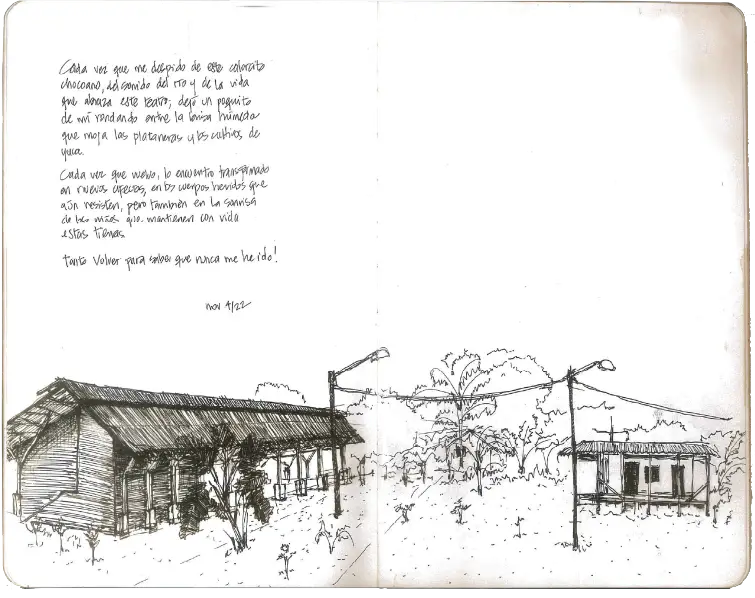 Cada vez que me despido de este calorcito
chocoano, del sonido del rio y de la vida
que abraza este teatro; dejo un poquito
de mi rondando entre la brisa húmeda
que moja las plataneras y los cultivos de
yuca.
Cada vez que vuelvo, lo encuentro transformado
en nuevos , en los cuerpos heridos que
aún resisten, pero también en la sonrisa
de las que mantienen con vida
estas tierras
tanto volver para saber que nunca me he ido!
nov 4/22